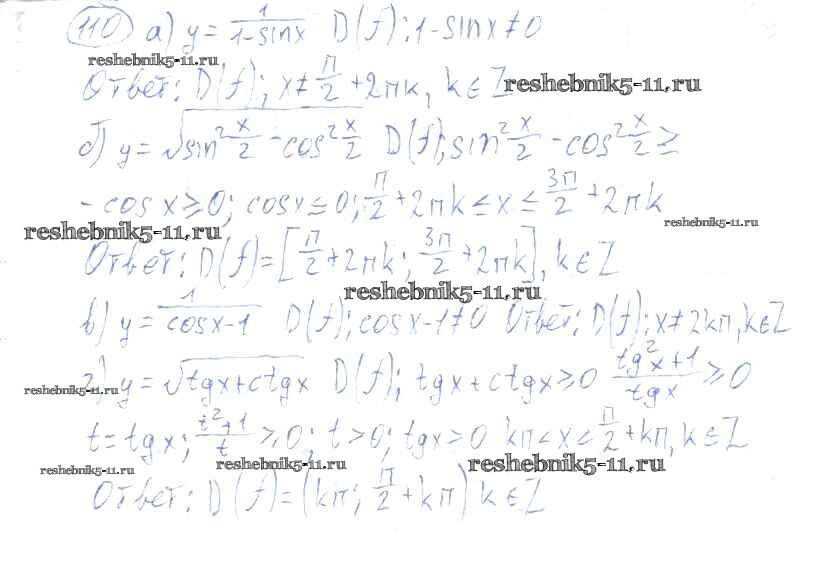 110 а) y = 1/(1-sinx) D(f); 1-sinx≠0
reshebnik5-11.ru
Ответ: D(f); x≠π/2+2πk, k∈Z
reshebnik5-11.ru
б) y = √(sin²x/2 - cos²x/2) D(f); sin²x/2 - cos²x/2 ≥
-cos x≥0; cosx≤0; π/2+2πk≤x≤3π/2+2πk
reshebnik5-11.ru
reshebnik5-11.ru
Ответ: D(f)=[π/2+2πk; 3π/2+2πk], k∈Z
reshebnik5-11.ru
в) y = 1/(cosx-1) D(f); cosx-1≠0 Ответ: D(f); x≠2kπ, k∈Z
г) y = √(tgx+ctgx) D(f); tgx+ctgx≥0 (tg²x+1)/tgx ≥0
reshebnik5-11.ru
t=tgx; (t²+1)/t ≥0; t>0; tgx>0 kπ<x<π/2+kπ, k∈Z
reshebnik5-11.ru
reshebnik5-11.ru
reshebnik5-11.ru
Ответ: D(f)=(kπ; π/2+kπ) k∈Z